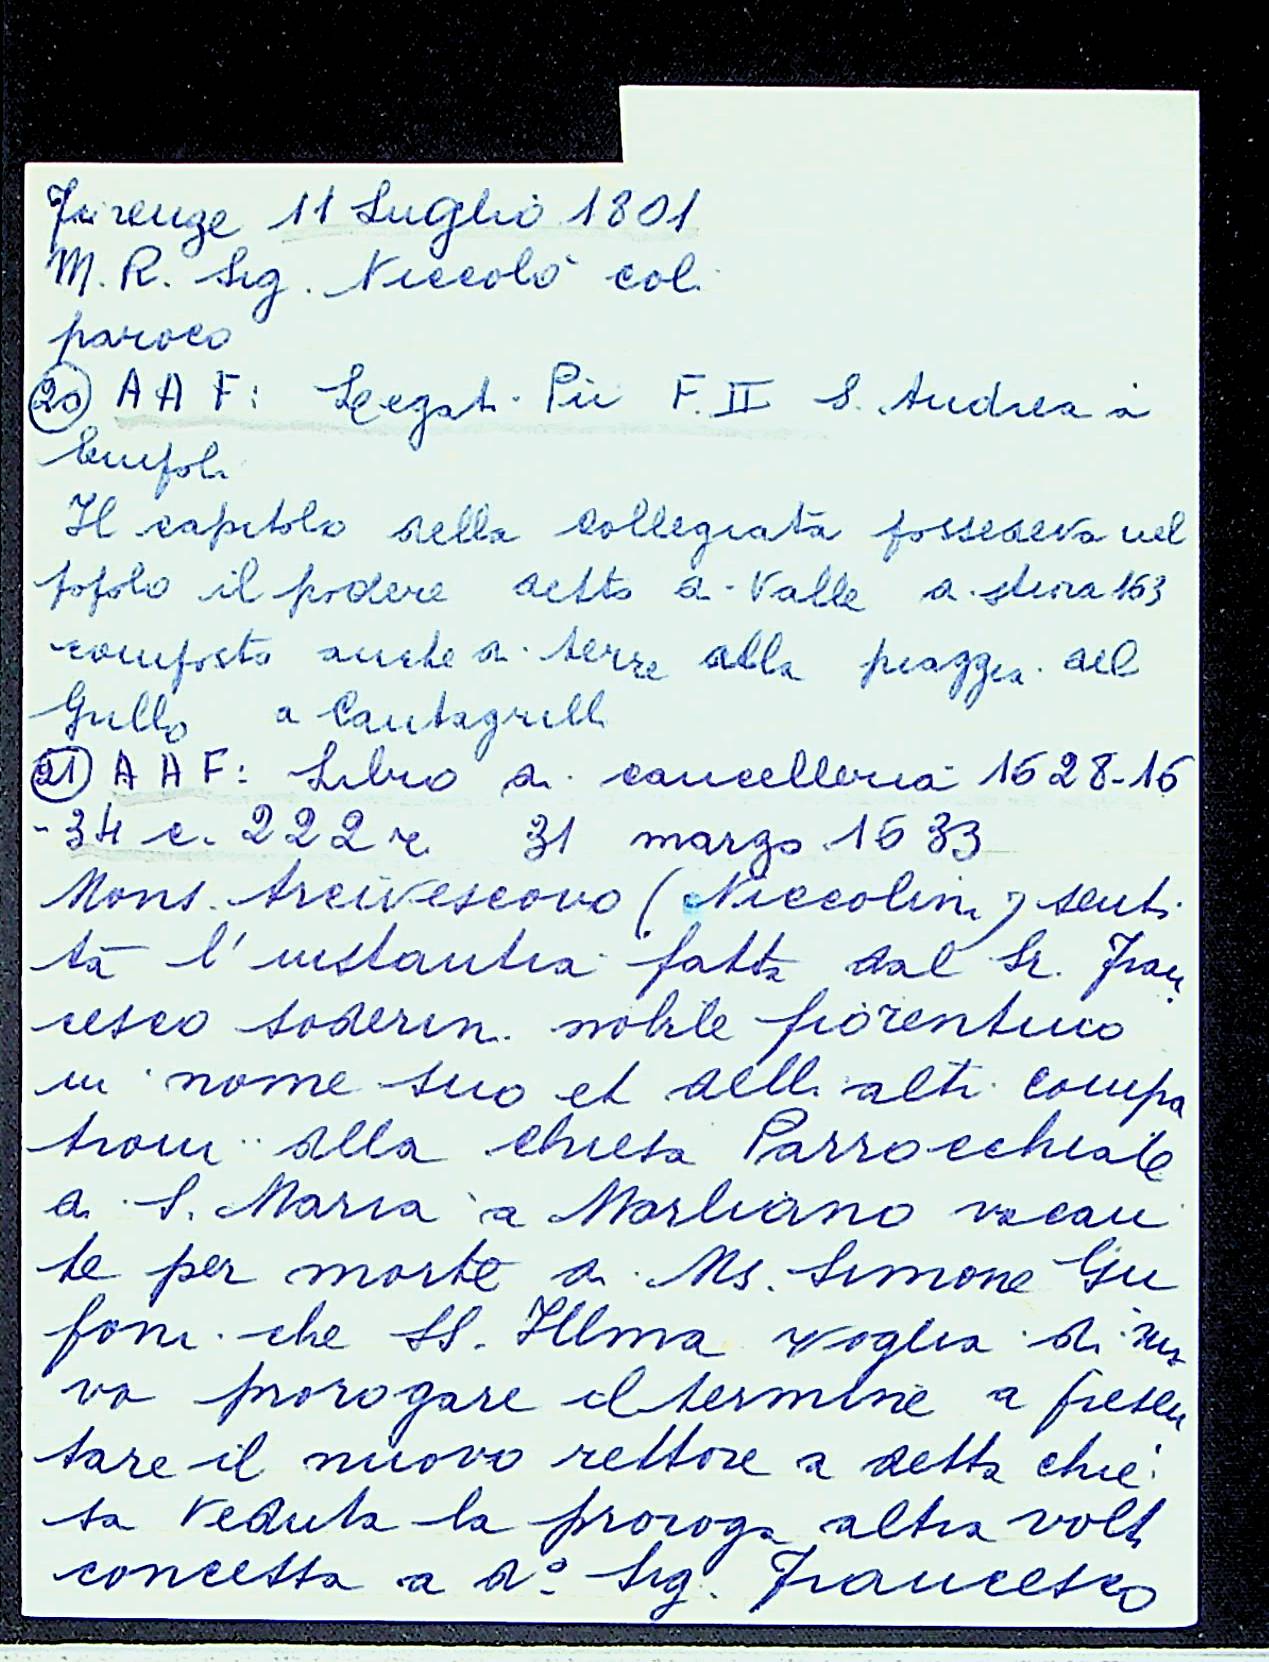 Firenze 11 Luglio 1801
M. R. Sig. Niccolò col.
paroco
(20) A A F: Legati Pii F. II S. Andrea a
Empoli
Il capitolo della Collegiata possedeva nel
popolo il podere detto di Valle di stiora 163
composto anche di terre alla piaggia del
Gullo a Cantagrilli
(21) A A F: Libro di cancelleria 1628-16
-34 c. 222 r. 31 marzo 1633
Mons. Arcivescovo (Niccolini) senti
ta l'instantia fatta dal Sr. Fran
cesco Soderini nobile fiorentino
in nome suo et delli altri compa
troni della chiesa Parrocchiale
di S. Maria a Marliano vacan
te per morte di Ms. Simone Giu
foni che SS. Illma voglia di nuo
vo prorogare il termine a presen
tare il nuovo rettore a detta chie
sa veduta la proroga altra volt
concessa a do. Sig. Francesco